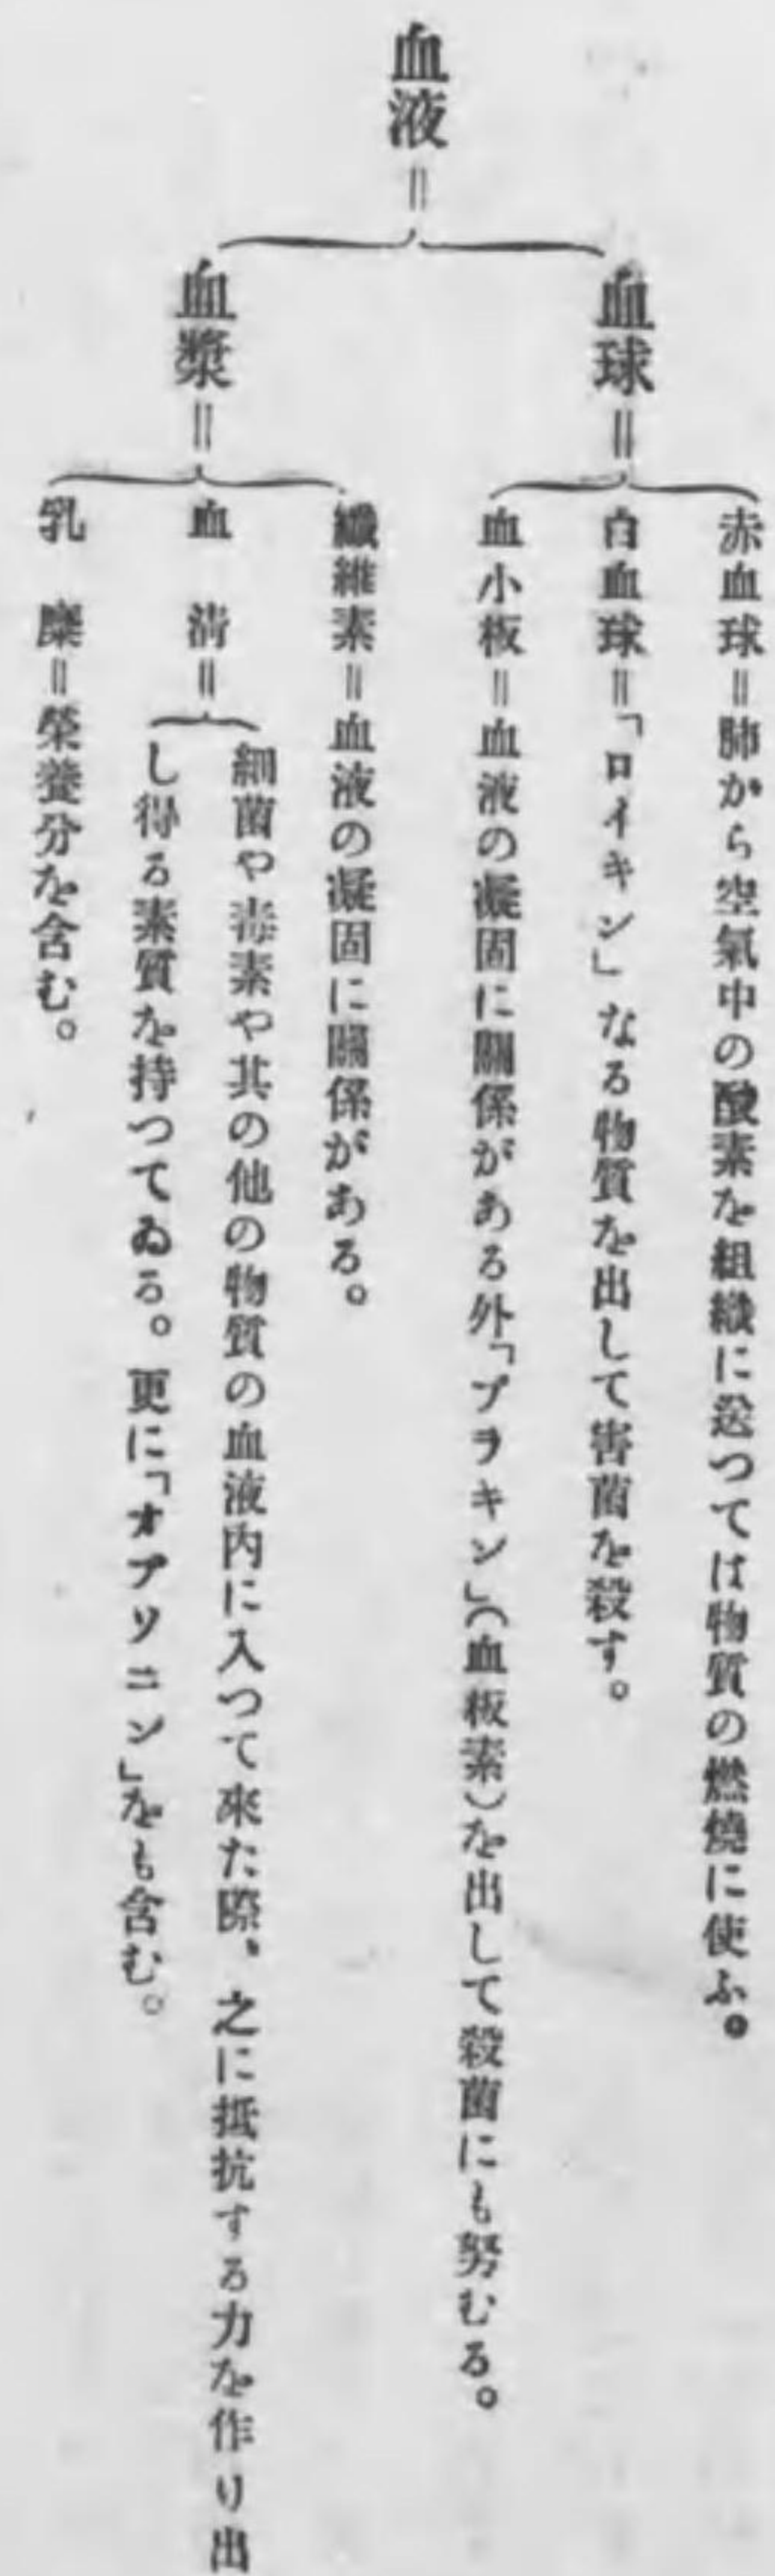 血液＝
血球＝
赤血球＝肺から空氣中の酸素を組織に送つては物質の燃燒に使ふ。
白血球＝「ロイキン」なる物質を出して害菌を殺す。
血小板＝血液の凝固に關係がある外「プラキン」（血板素）を出して殺菌にも努むる。
血漿＝
纖維素＝血液の凝固に關係がある。
血清＝
細菌や毒素や其の他の物質の血液內に入つて來た際、之に抵抗する力を作り出
し得る素質を持つてゐる。更に「オプソニン」をも含む。
乳糜＝榮養分を含む。